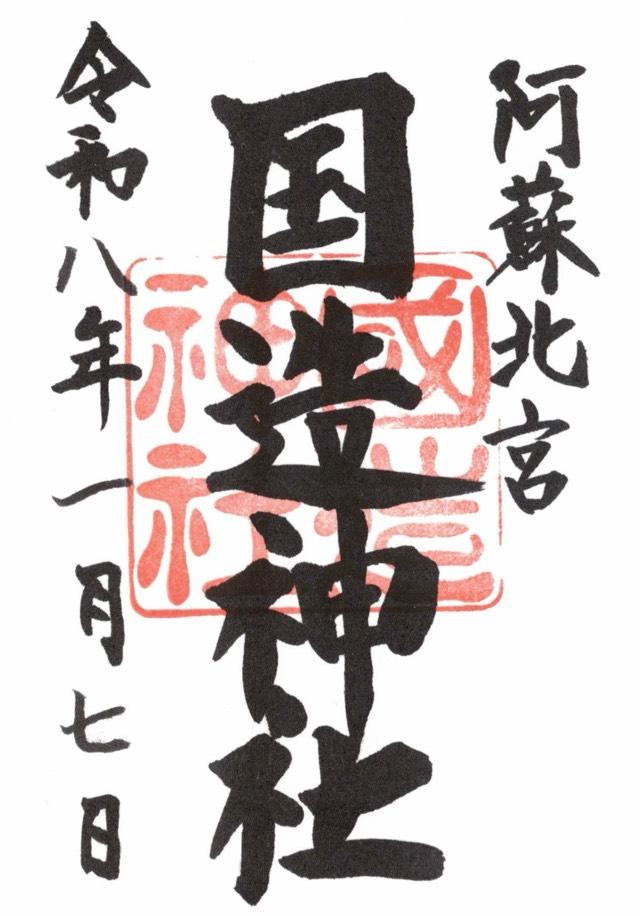 阿蘇北宮
国造神社
國造神社
令和八年一月七日